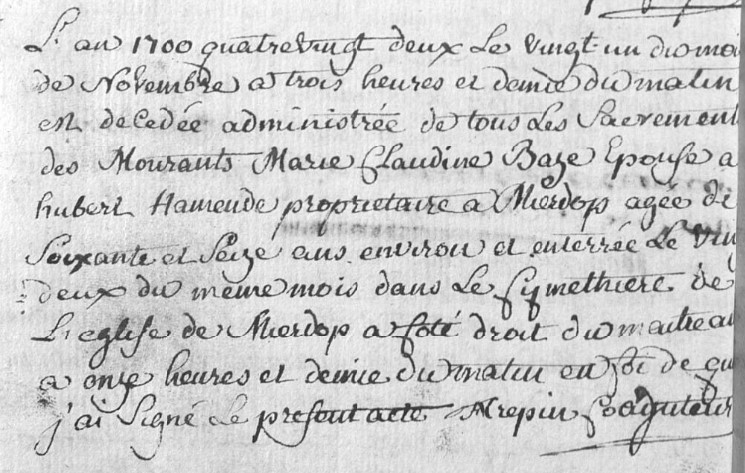 L'an 1700 quatrevingt deux Le vingt un du moi
de Novembre a trois heures et demie du matin
est decedée administrée de tous Les Sacrement
des Mourants Marie Claudine Baze Epouse a
hubert Hamende proprietaire a Merdop agée de
Soixante et Seize ans environ et enterrée Le vin
deux du méme mois dans Le Cymethiere de
L'eglise de Merdop a Coté droit du maitre au
a onze heures et demie du matin en foi de qu
j'ai Signé Le present acte Mrepin Coaguteur